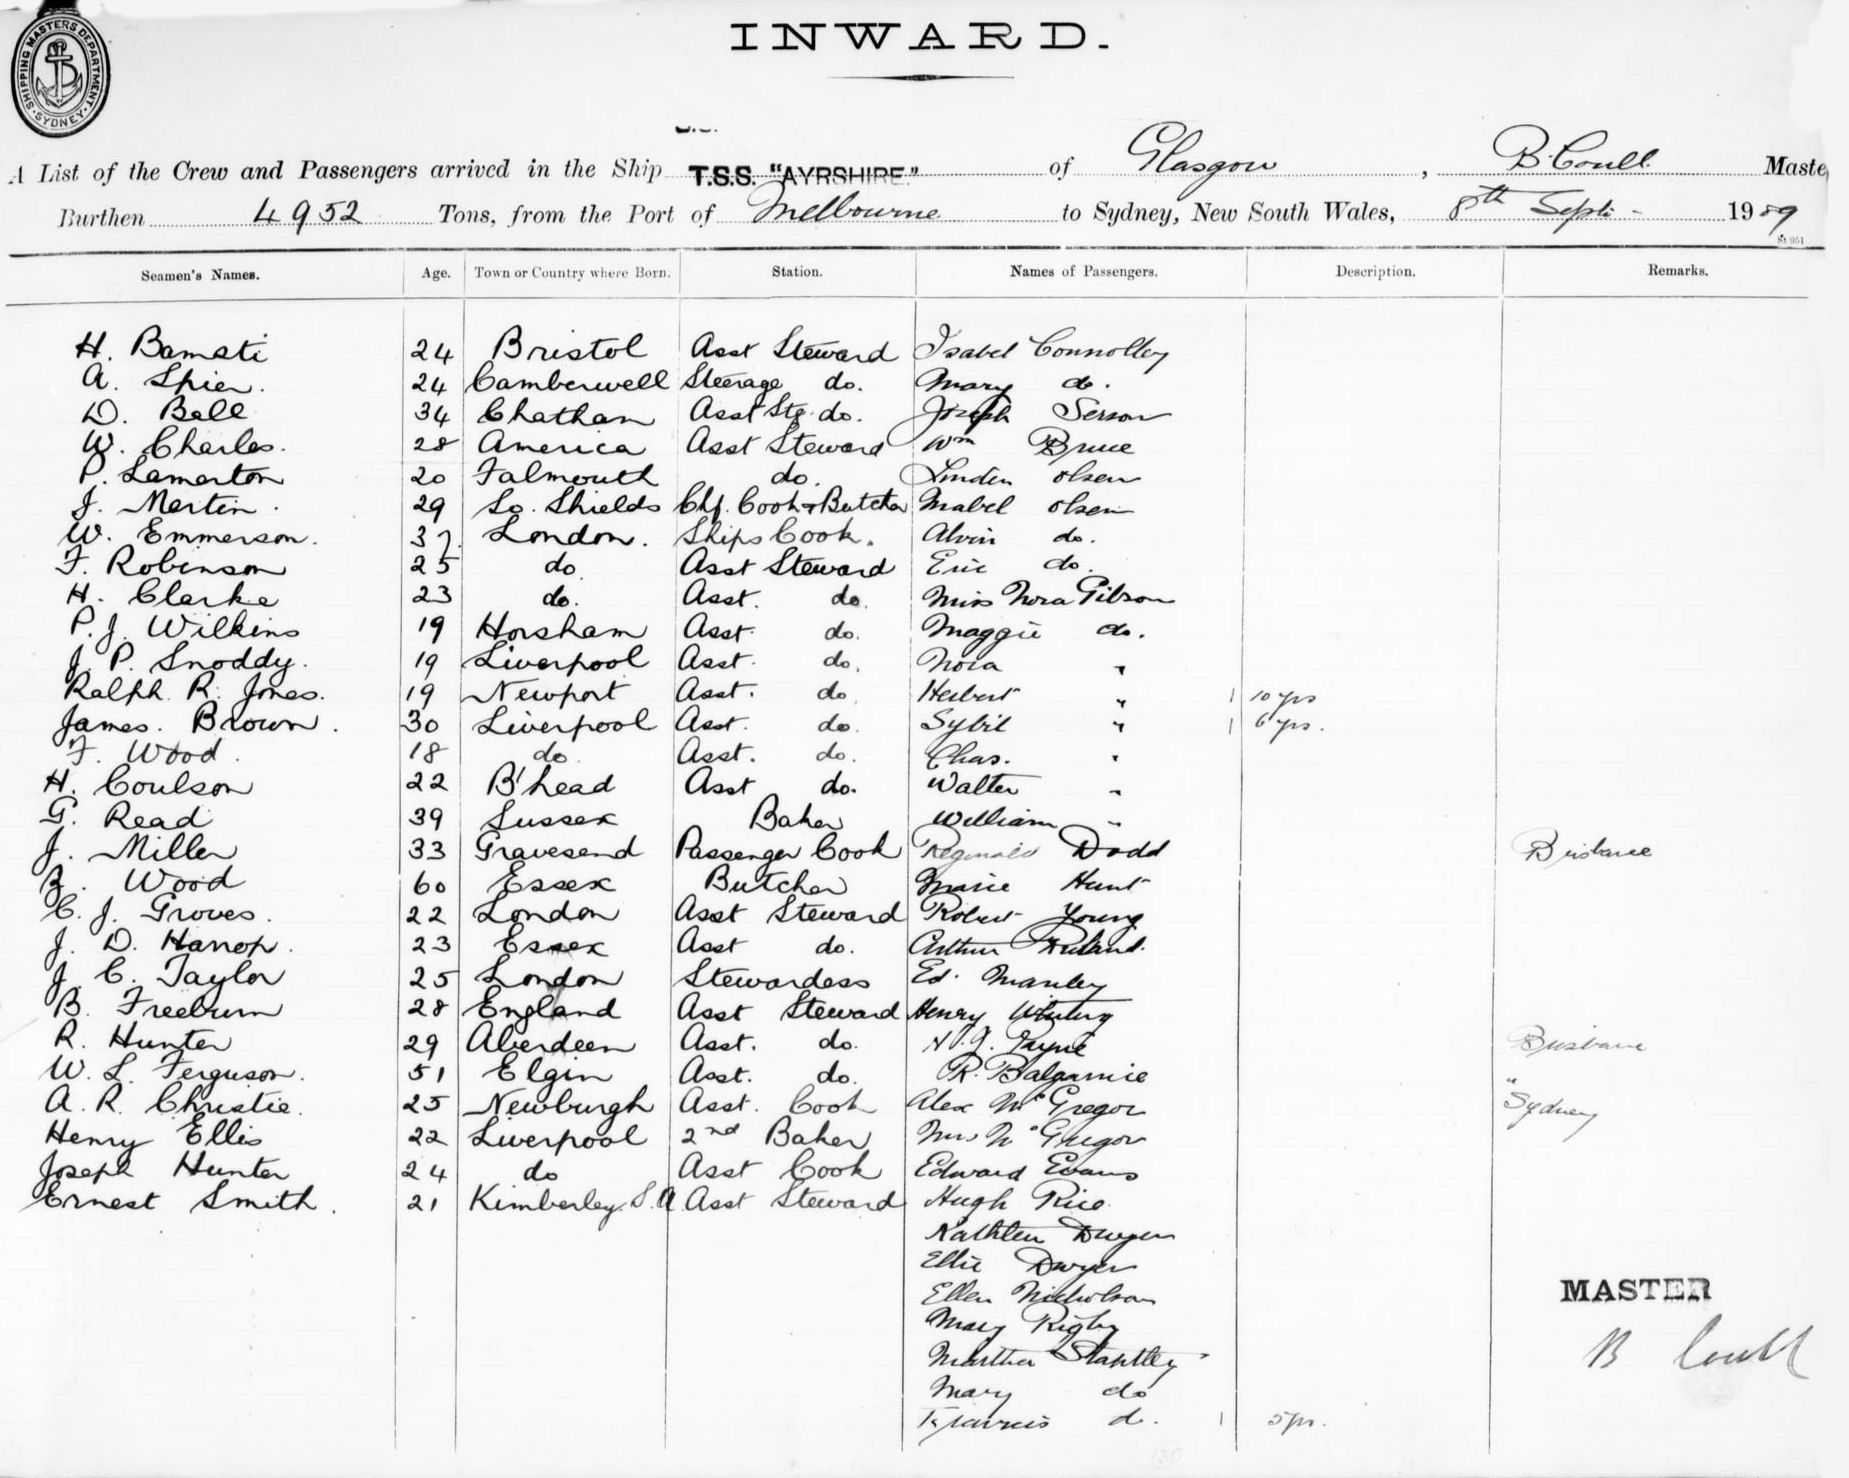 SHIPPING MASTERS DEPARTMENT SYDNEY
INWARD.
A List of the Crew and Passengers arrived in the Ship T.S.S. "AYRSHIRE" of Glasgow, B. Coull Maste
Burthen 4952 Tons, from the Port of Melbourne to Sydney, New South Wales, 8th Sept. 1909
St 951
Seamen's Names. Age. Town or Country where Born. Station. Names of Passengers. Description. Remarks.
H. Bamsti 24 Bristol Asst Steward Isabel Connolley
A. Spier. 24 Camberwell Steerage do. Mary do.
D. Ball 34 Chatham Asst Stg. do. Joseph Serson
W. Charles. 28 America Asst Steward Wm Bruce
P. Lamerton 20 Falmouth do. Linden Olsen
J. Martin. 29 So. Shields Chf. Cook & Butcher Mabel Olsen
W. Emmerson. 37. London. Ships Cook. Alvin do.
F. Robinson 25 do Asst Steward Eric do.
H. Clarke 23 do. Asst. do. Miss Nora Gibson
P. J. Wilkins 19 Horsham Asst. do. Maggie do.
J. P. Snoddy. 19 Liverpool Asst. do. Nora "
Ralph R. Jones. 19 Newport Asst. do Herbert " 1 10 yrs
James. Brown. 30 Liverpool Asst. do. Sybil " 1 6 yrs.
F. Wood. 18 do Asst. do. Chas. "
H. Coulson 22 B'head Asst do. Walter "
G. Read 39 Sussex Baker William "
J. Miller 33 Gravesend Passenger Cook Reginald Dodd Brisbane
Z. Wood 60 Essex Butcher Marie Hunt
C. J. Groves. 22 London Asst Steward Robert Young
J. D. Harrop. 23 Essex Asst do. Arthur
J. C. Taylor 25 London Stewardess Ed. Manley
B. Freeburn 28 England Asst Steward Henry Whiting
R. Hunter 29 Aberdeen Asst. do. Payne Brisbane
W. L. Ferguson. 51 Elgin Asst. do. R. Balgarnie "
A. R. Christie. 25 Newburgh Asst. Cook Alex McGregor Sydney
Henry Ellis 22 Liverpool 2nd Baker Mrs McGregor
Joseph Hunter 24 do Asst Cook Edward Evans
Ernest Smith. 21 Kimberley S.A Asst Steward Hugh Rice.
Kathleen Dwyer
Ellie Dwyer
Ellen Nicholson
Mary Rigby
Martha Stantley
Mary do
Francis do. 1 5 yrs.
MASTER
B Coull